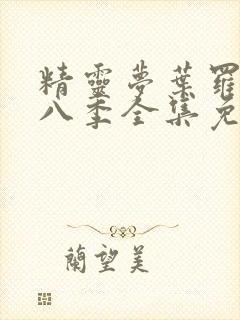 精靈夢葉羅
八季全集免
蘭望美